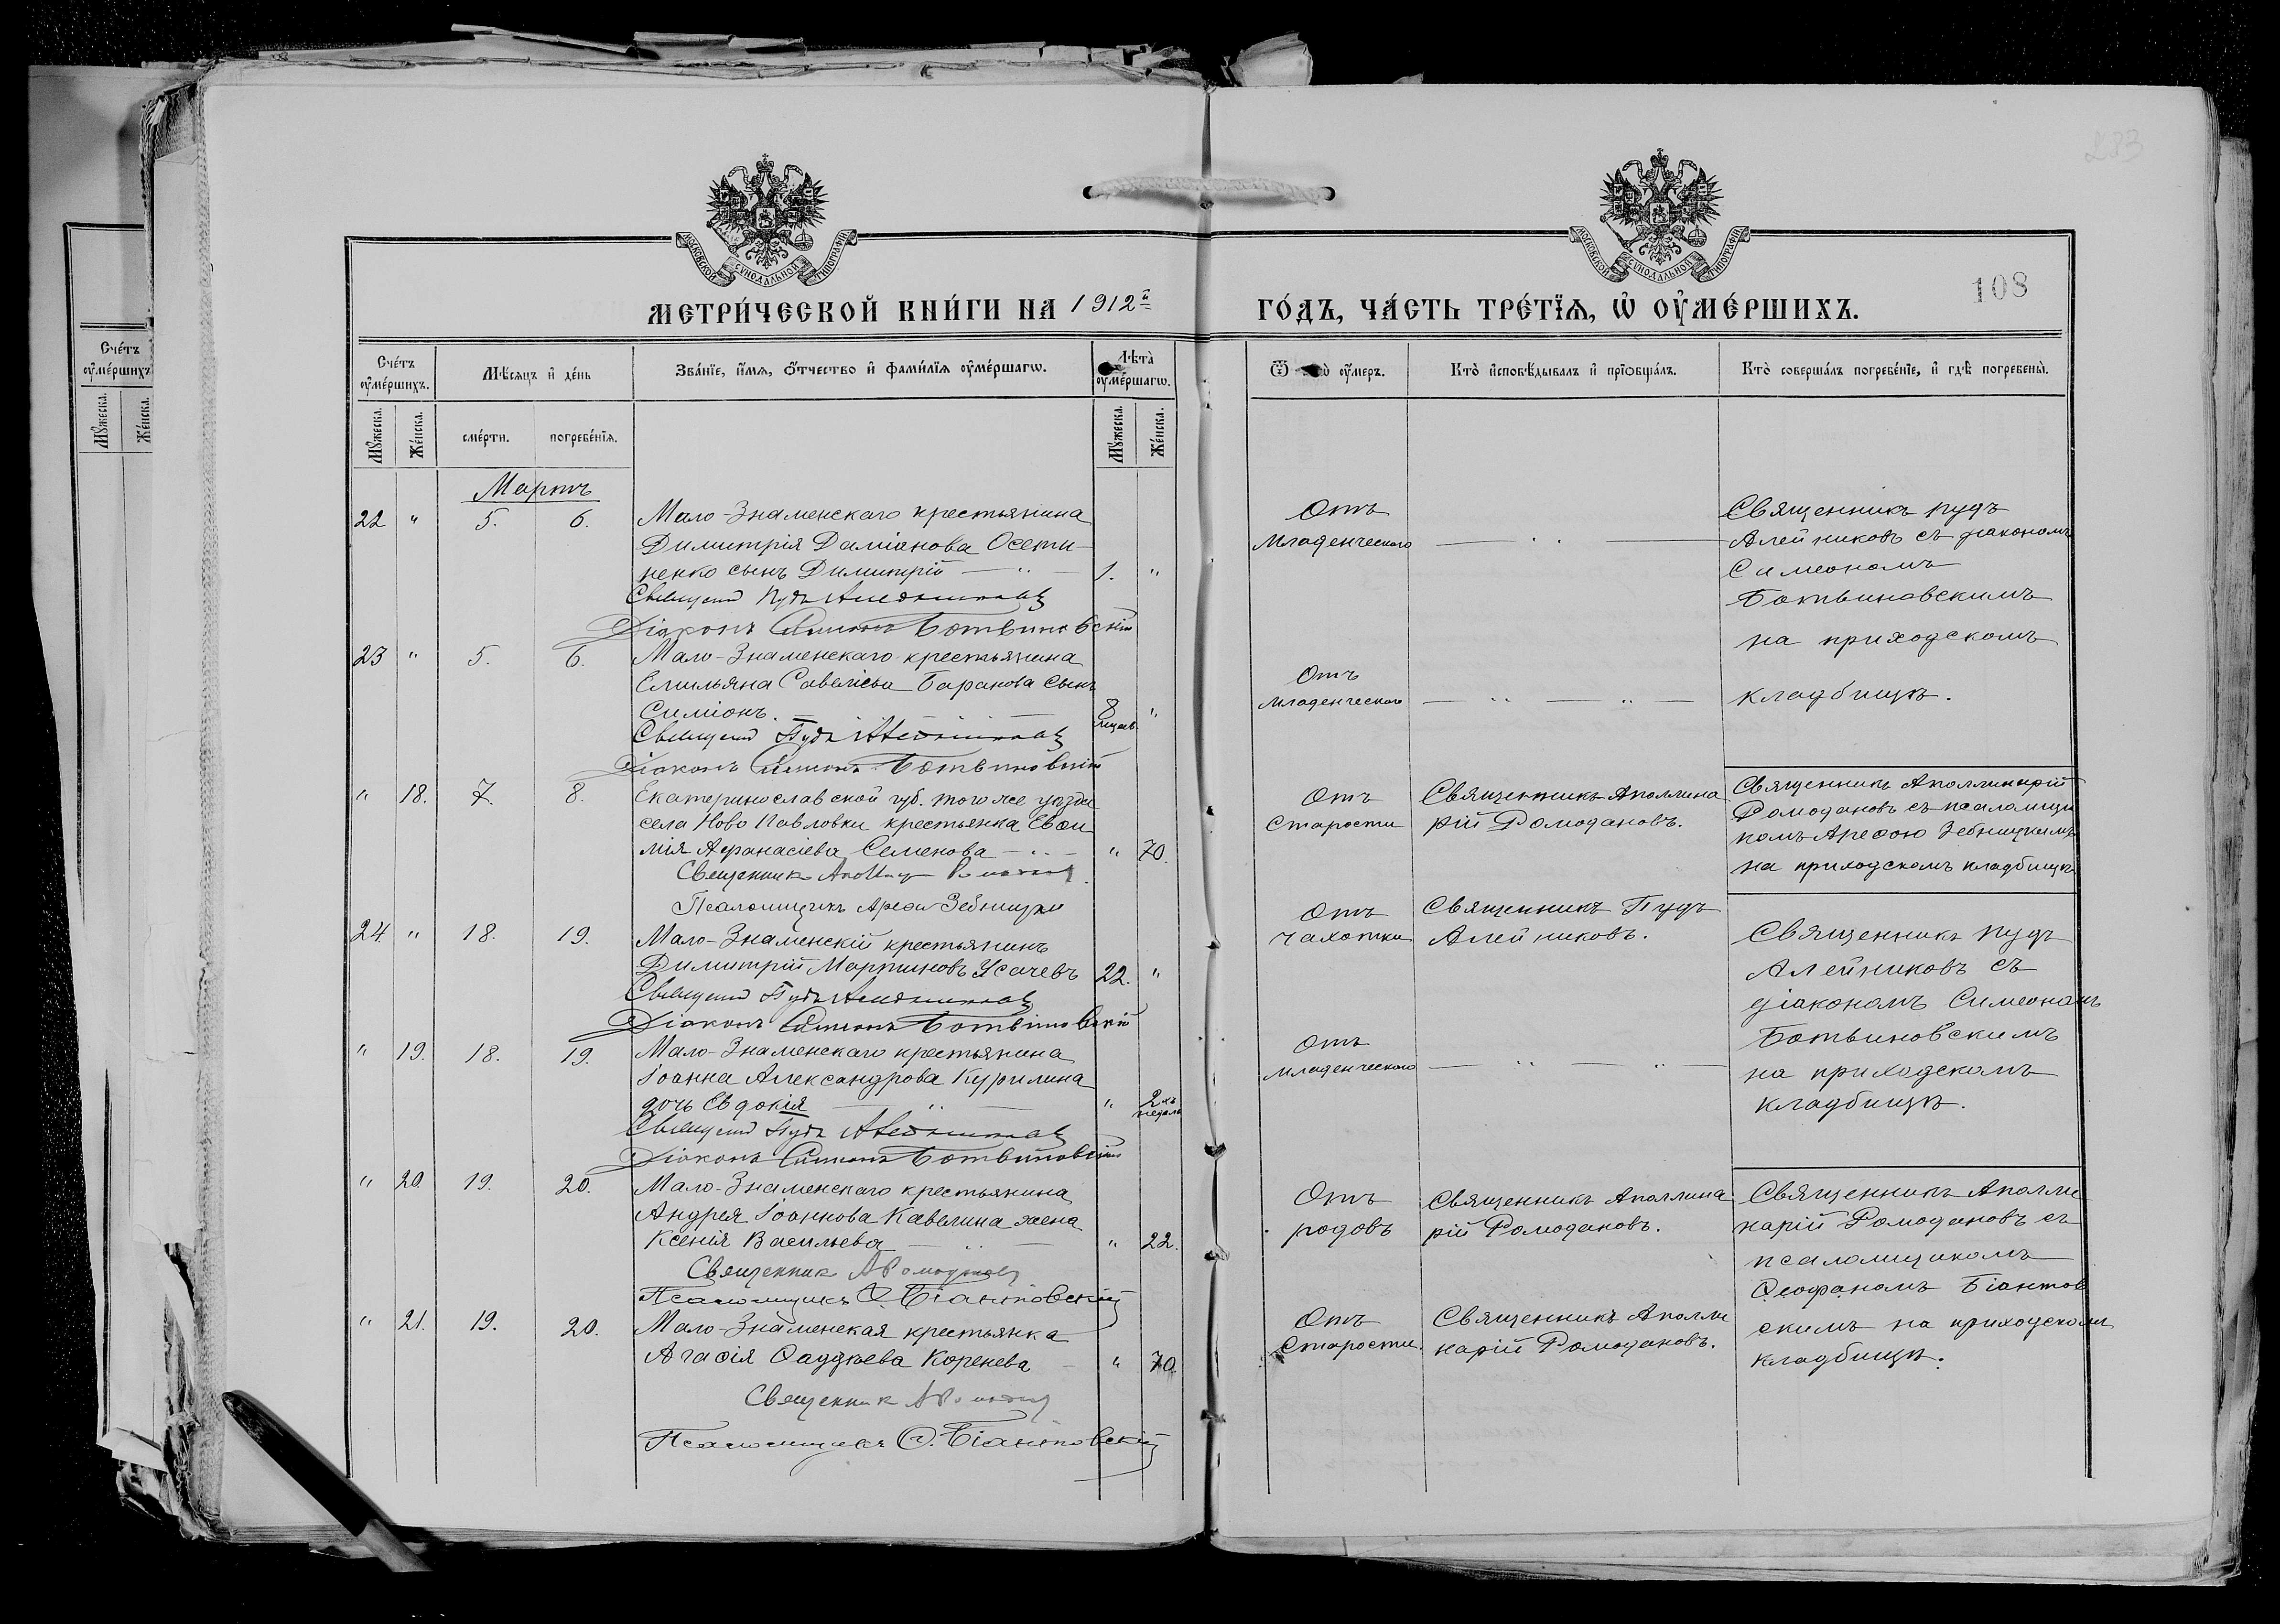 233
108
МЕТРИ́ЧЕСКОЙ КНИ́ГИ НА 1912й
ГО́ДЪ, ЧА́СТЬ ТРЕ́ТЇѦ, Ѡ҆ ОУ҆МЕ́РШИХЪ.
МОСКОВСКОЙ СѴНОДАЛЬНОЙ ТИПОГРАФІИ
МОСКОВСКОЙ СѴНОДАЛЬНОЙ ТИПОГРАФІИ
Сче́тъ оу҆ме́ршихъ
Мꙋ́жеска.
Же́нска.
Сче́тъ оу҆ме́ршихъ.
Мꙋ́жеска.
Же́нска.
Мѣ́сяцъ и҆ де́нь
сме́рти.
погребе́нїѧ.
Зва́нїе, и҆́мѧ, ѻ҆́тчество и҆ фами́лїѧ оу҆ме́ршагѡ.
Лѣта̀ оу҆ме́ршагѡ.
Мꙋ́жеска.
Же́нска.
Ѿ оу҆́меръ.
Кто̀ и҆сповѣ́дывалъ и҆ прїѡбща́лъ.
Кто̀ соверша́лъ погребе́нїе, и҆ гдѣ̀ погребены̀.
Мартъ
22 " 5. 6. Мало-Знаменскаго крестьянина
Димитрія Даміанова Осети-
ненко сынъ Димитрій 1. "
Священ Пудъ Алейников
Діаконъ Симеонъ Ботвиновскій
Отъ
Младенческаго
Священникъ Пудъ
Алейниковъ съ діакономъ
Симеономъ
Ботвиновскимъ
на приходскомъ
кладбищѣ.
23 " 5. 6. Мало-Знаменскаго крестьянина
Емильяна Савеліева Баранова сынъ
Симіонъ. 8 мѣсяцев "
Священ Пудъ Алейников
Діаконъ Симеонъ Ботвиновскій
Отъ
младенческаго
" 18. 7. 8. Екатеринославской губ. того же уѣзда
села Ново Павловки крестьянка Евѳи
мія Аѳанасіева Семенова " 70.
Священникъ Ромоданов
Псаломщикъ Ареѳа Зебницкій
Отъ
Старости
Священникъ Аполлина
рій Ромодановъ.
Священникъ Аполлинарій
Ромодановъ съ псаломщи
комъ Ареѳою Зебницкимъ
на приходскомъ кладбищѣ
24 " 18. 19. Мало-Знаменскій крестьянинъ
Димитрій Мартиновъ Усачевъ 22. "
Священ Пудъ Алейников
Діаконъ Симеонъ Ботвиновскій
Отъ
чахотки
Священникъ Пудъ
Алейниковъ.
Священникъ Пудъ
Алейниковъ съ
діакономъ Симеономъ
Ботвиновскимъ
на приходскомъ
кладбищѣ.
" 19. 18. 19. Мало-Знаменскаго крестьянина
Іоанна Александрова Курилина
дочь Евдокія " 2хъ недѣль
Священ Пудъ Алейников
Діаконъ Симеонъ Ботвиновскій
Отъ
младенческаго
" 20. 19. 20. Мало-Знаменскаго крестьянина
Андрея Іоаннова Кавелина жена
Ксенія Васильева " 22.
Священникъ А Ромоданов
Псаломщикъ Ѳ. Біантовскій
Отъ
родовъ
Священникъ Аполлина
рій Ромодановъ.
Священникъ Аполли
нарій Ромодановъ съ
псаломщикомъ
Ѳеофаномъ Біантов
скимъ на приходскомъ
кладбищѣ.
" 21. 19. 20. Мало-Знаменская крестьянка
Агаѳія Ѳаддѣева Коренева " 70.
Священник А Ромоданов
Псаломщикъ Ѳ. Біантовскій
Отъ
Старости.
Священникъ Аполли
нарій Ромодановъ.